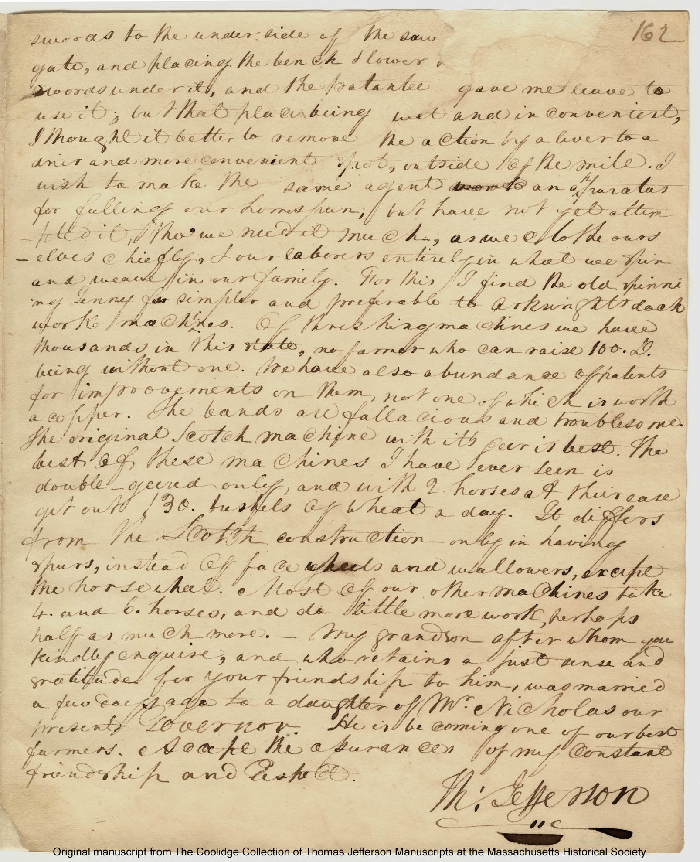 162
swords to the under side of the saw
gate, and placing the bench & lower
swords under it, and the patantee gave me leave to
use it; but that place being wet and inconvenient,
I thought it better to remove the action by a lever to a
drier and more convenient spot, outside of the mill. I
wish to make the same agent work an apparatus
for fulling our homespun, but have not yet attem
-pted it, tho' we need it much, as we clothe ours
-elves chiefly, & our laborers entirely in what we spin
and weave in our family. For this I find the old spinni
ng jenny far simpler and preferable to Arkwright's
work machines. Of threshing machines we have
thousands in this state, no farmer who can raise 100. D.
being without one. We have also abundance of patents
for improvements on them, not one of which is worth
a copper. The bands are fallacious and troublesome.
The original Scotch machine with its gear is best. The
best of these machines I have ever seen is
double-geared only, and with 2. horses at their ease
get out 130. bushels of wheat a day. It differs
from the Scotch construction only in having
spurs, instead of face wheels and wallowers, except
the horse wheel. Most of our other machines take
4. and 6. horses, and do little more work, perhaps
half as much more. - My grandson after whom you
kindly enquire, and who retains a just sense and
gratitude for your friendship to him, was married
a few days ago to a daughter of Mr. Nicholas our
present Governor. He is becoming one of our best
farmers. Accept the assurances of my constant
friendship and
Th: Jefferson
Original manuscript from The Coolidge Collection of Thomas Jefferson Manuscripts at the Massachusetts Historical Society